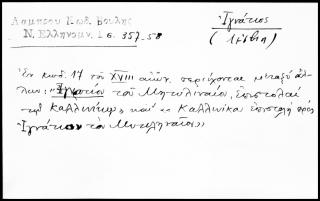 Λαμπρου Κωδ. Βουλης
Ν. Ελληνομν. 16. 357-58
Ἰγνάτιος
Ἐν κωδ. 17 τῆς XVIII αἰῶν. περιέχονται μεταξὺ ἄλ-
λων: "Ἰγνατίου τοῦ Μητυλιναίου, ἐπιστολαὶ
τῷ Καλλινίκῳ, καὶ "Καλλινίκου ἐπιστολὴ πρὸς
Ἰγνάτιον τὸν Μυτιληναῖον"